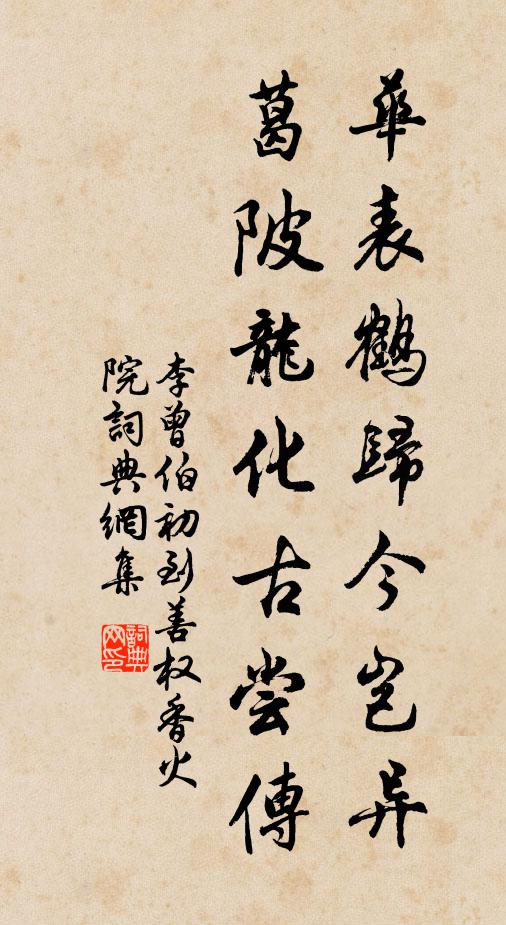 華表鶴歸今岂异
葛陂龍化古尝傳
李曾伯初到善权香火
院詞典網集
詞典网印